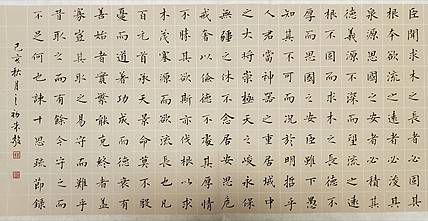 臣聞求木之長者必固其
根本欲流之遠者必浚其
泉源思國之安者必積其
德義源不深而望流之遠
根不固而求木之長德不
厚而思國之安臣雖下愚
知其不可而況於明哲乎
人君當神器之重居域中
之大將崇極天之峻永保
無疆之休不念居安思危
戒奢以儉德不處其厚情
不勝其欲斯亦伐根以求
木茂塞源而欲流長也凡
百元首承天景命莫不殷
憂而道著功成而德衰有
善始者實繁能克終者蓋
寡豈其取之易守之難乎
昔取之而有餘今守之而
不足何也 諫十思疏節錄
己亥秋月之初朱